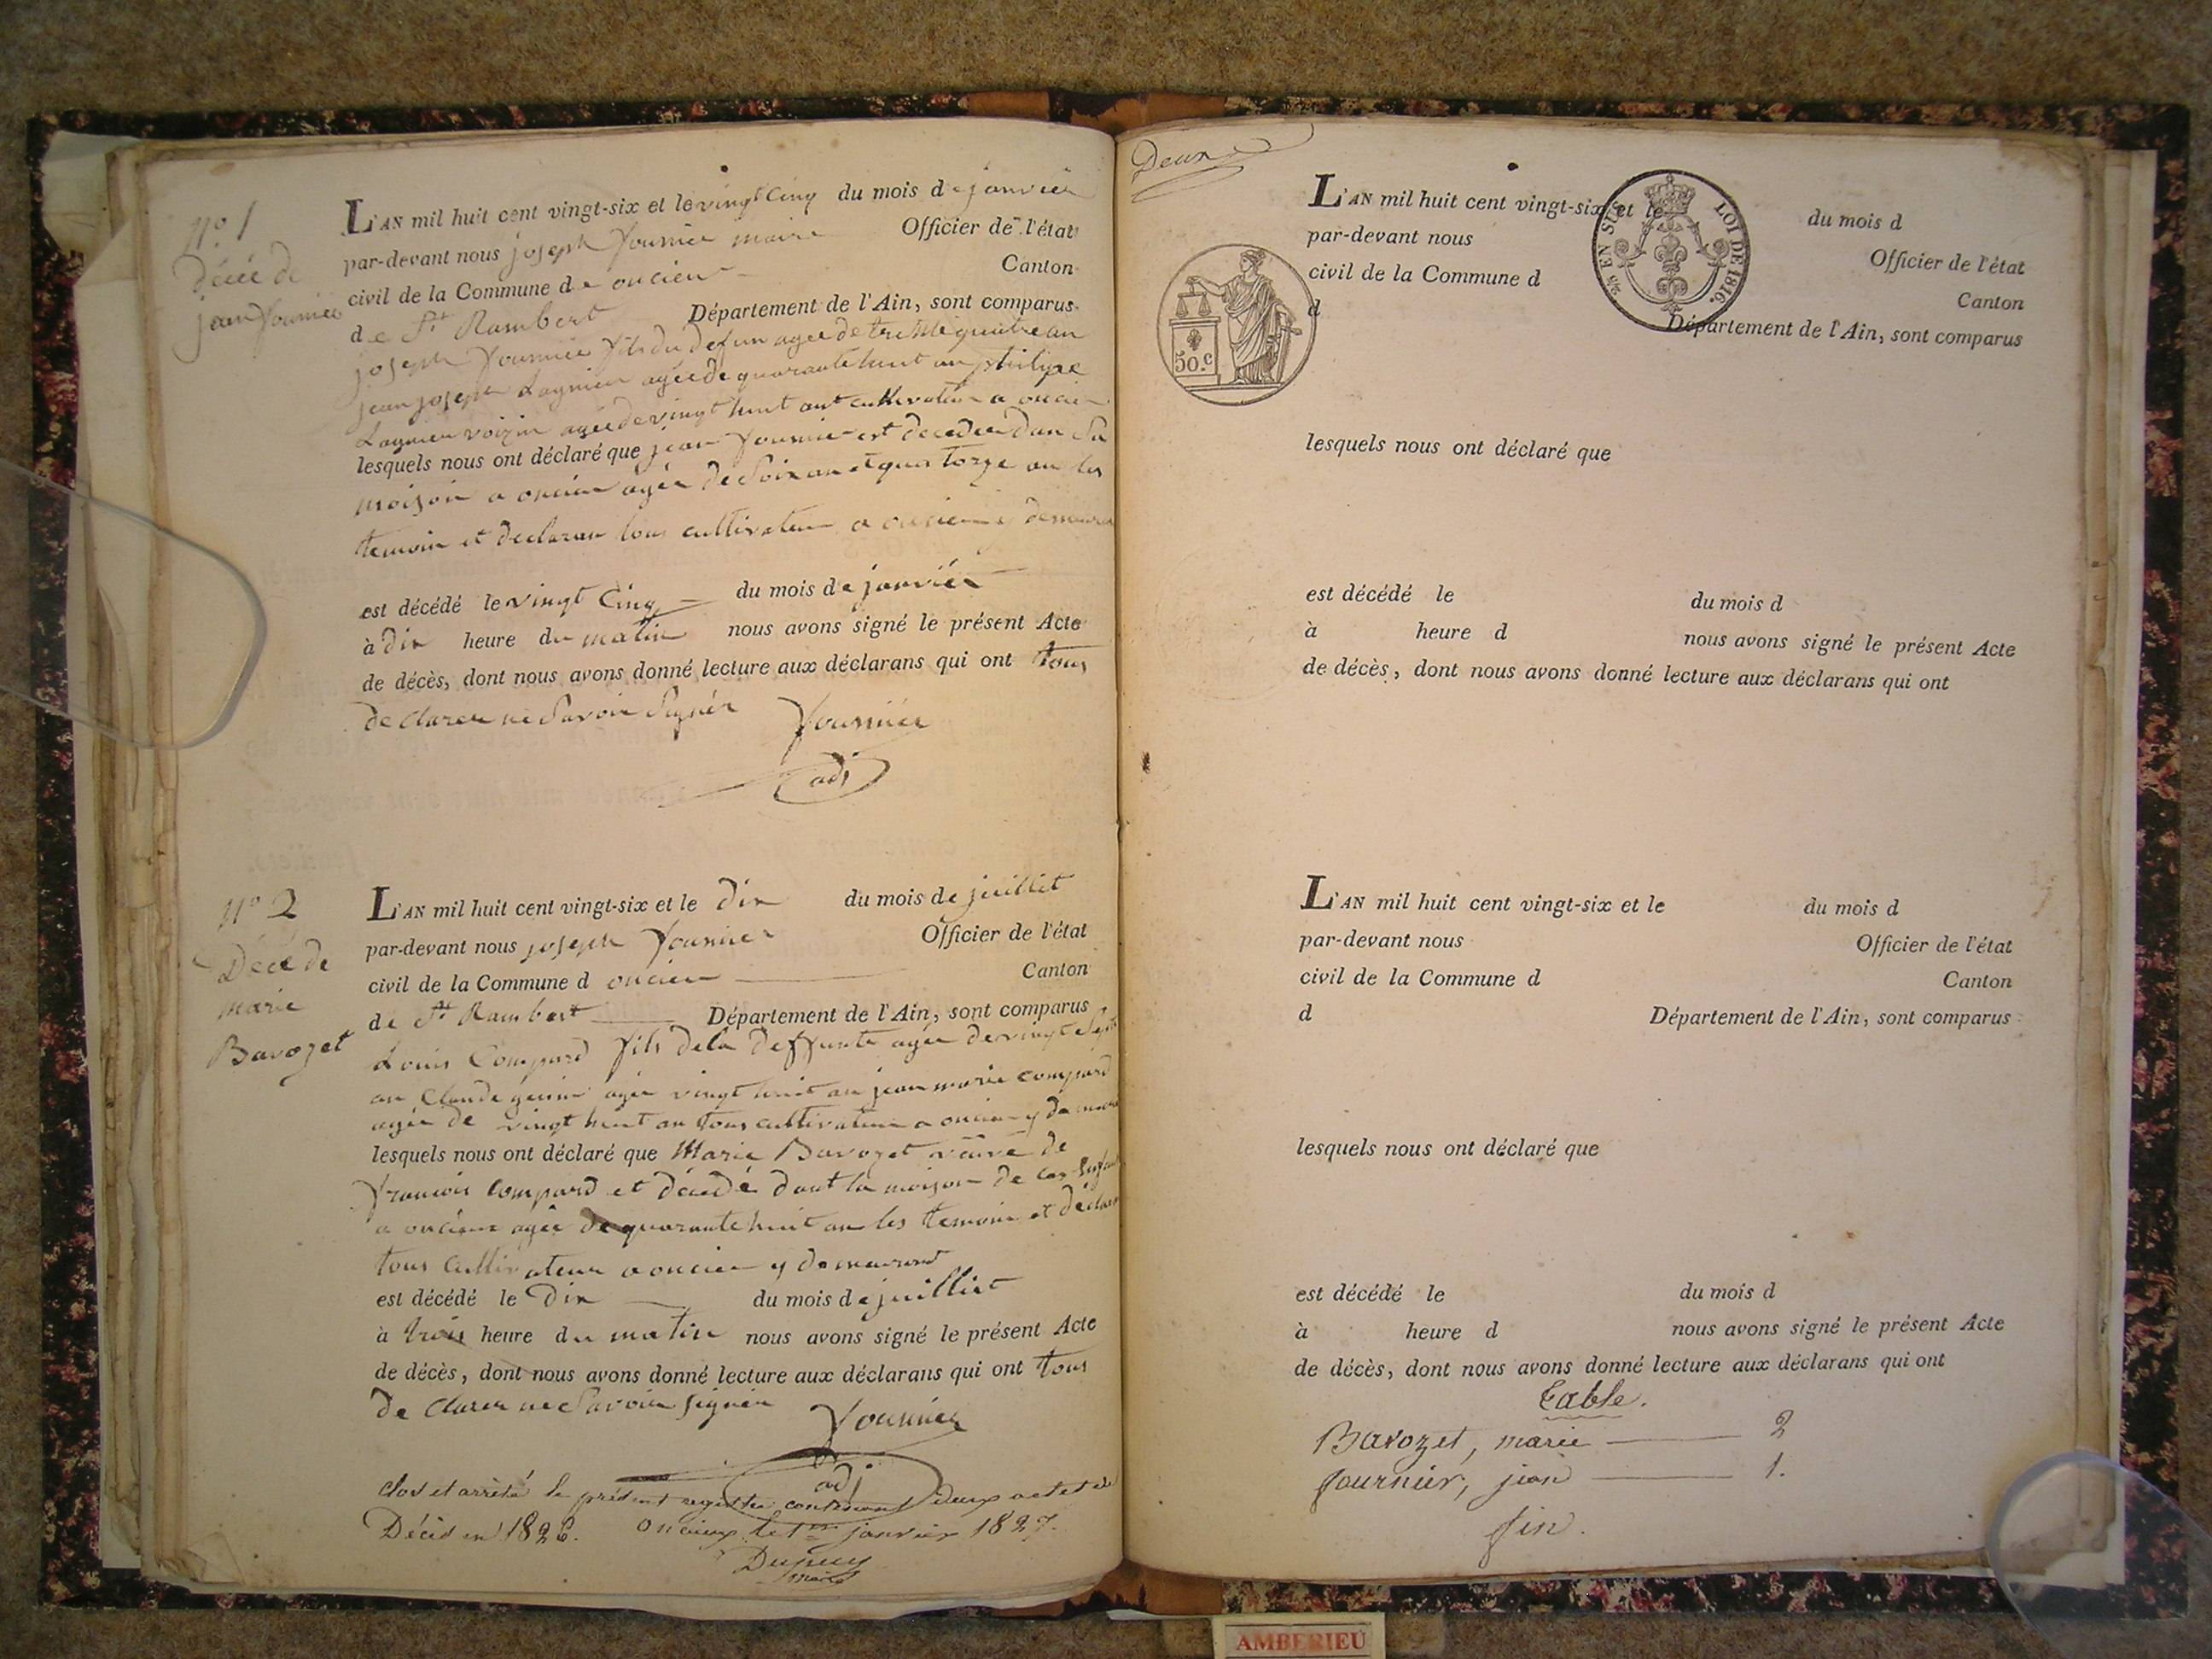 N.o 1
décée de
jean fournier
L'AN mil huit cent vingt-six et le vingt Cinq du mois de janvier
par-devant nous joseph fournier maire Officier de l'état
civil de la Commune de oncieu Canton
de St Rambert Département de l'Ain, sont comparus
joseph fournier fils du defun agee de trente quatre an
jean joseph Lagnieu agée de quarante huit an philipe
Lagnieu voizin agée de vingt huit ant cultivateur a oncieu
lesquels nous ont déclaré que jean fournier est decedee dan Sa
moison a oncieu agée de Soixan et quatorze an les
temoin et declaran tous cultivateur a oncieu y demeura
est décédé le vingt Cinq du mois de janvier
à dix heure du matin nous avons signé le présent Acte
de décès, dont nous avons donné lecture aux déclarans qui ont tous
declarer ne Savoir Signér
fournier
adj
N.o 2
Décé de
marie
Bavozet
L'AN mil huit cent vingt-six et le dix du mois de juillet
par-devant nous joseph fournier Officier de l'état
civil de la Commune d oncieu Canton
de St Rambert Département de l'Ain, sont comparus
Louis Compard fils dela deffunte agée de vingt Sept
an Claude agée vingt huit an jean marie compard
agée de vingt huit an tous cultivateur a oncieu y demeura
lesquels nous ont déclaré que Marie Bavozet de
francois Compard et décedé dant la moison de
a oncieu agée de quarante huit an les temoin et declaran
tous Cultivateur a oncieu y demeurant
est décédé le Dix du mois de juilliet
à trois heure du matin nous avons signé le présent Acte
de décès, dont nous avons donné lecture aux déclarans qui ont tous
de Clarer ne Savoir signér
fournier
adj
Clos et arrêté le présent registre contenant deux actes de
Décès en 1826. Oncieux le 1er janvier 1827.
Dupuy
maire
Deux
L'AN mil huit cent vingt-six et le du mois d
par-devant nous Officier de l'état
civil de la Commune d Canton
d Département de l'Ain, sont comparus
EN SUS
LOI DE 1816.
50.c
lesquels nous ont déclaré que
est décédé le du mois d
à heure d nous avons signé le présent Acte
de décès, dont nous avons donné lecture aux déclarans qui ont
L'AN mil huit cent vingt-six et le du mois d
par-devant nous Officier de l'état
civil de la Commune d Canton
d Département de l'Ain, sont comparus
lesquels nous ont déclaré que
est décédé le du mois d
à heure d nous avons signé le présent Acte
de décès, dont nous avons donné lecture aux déclarans qui ont
Table.
Bavozet, marie 2
fournier, jean 1.
fin.
AMBERIEU